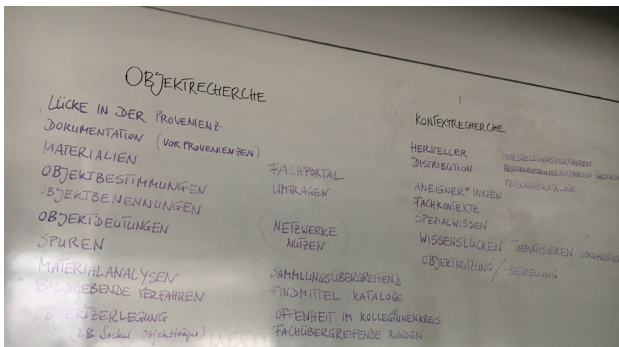 OBJEKTRECHERCHE
LÜCKE IN DER PROVENIENZ-
DOKUMENTATION (VORPROVENIENZEN)
MATERIALIEN
OBJEKTBESTIMMUNGEN
OBJEKTBENENNUNGEN
OBJEKTDEUTUNGEN
SPUREN
MATERIALANALYSEN
BILDGEBENDE VERFAHREN
OBJEKTZERLEGUNG
(z.B. Sockel Objektträger)
FACHPORTAL
UMFRAGEN
NETZWERKE
NUTZEN
SAMMLUNGSÜBERGREIFEND
FINDMITTEL KATALOGE
OFFENHEIT IM KOLLEGINNENKREIS
FACHÜBERGREIFENDE RUNDEN
KONTEXTRECHERCHE
HERSTELLER HERSTELLUNGSVERFAHREN
DISTRIBUTION
VERKAUFSKATALOGE
ANEIGNER*INNEN
FACHKONTEXTE
SPEZIALWISSEN
WISSENSLÜCKEN THEMATISIEREN /
OBJEKTNUTZUNG / -BETREUUNG